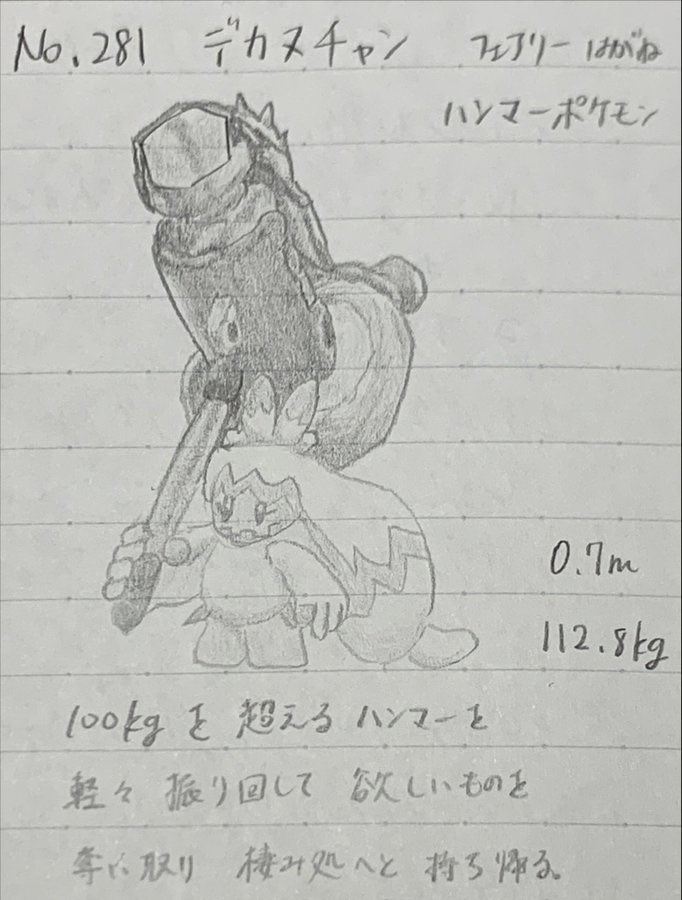 No.281 デカヌチャン フェアリー はがね
ハンマーポケモン
0.7m
112.8kg
100kgを超えるハンマーを
軽々振り回して欲しいものを
奪い取り棲み処へと持ち帰る。